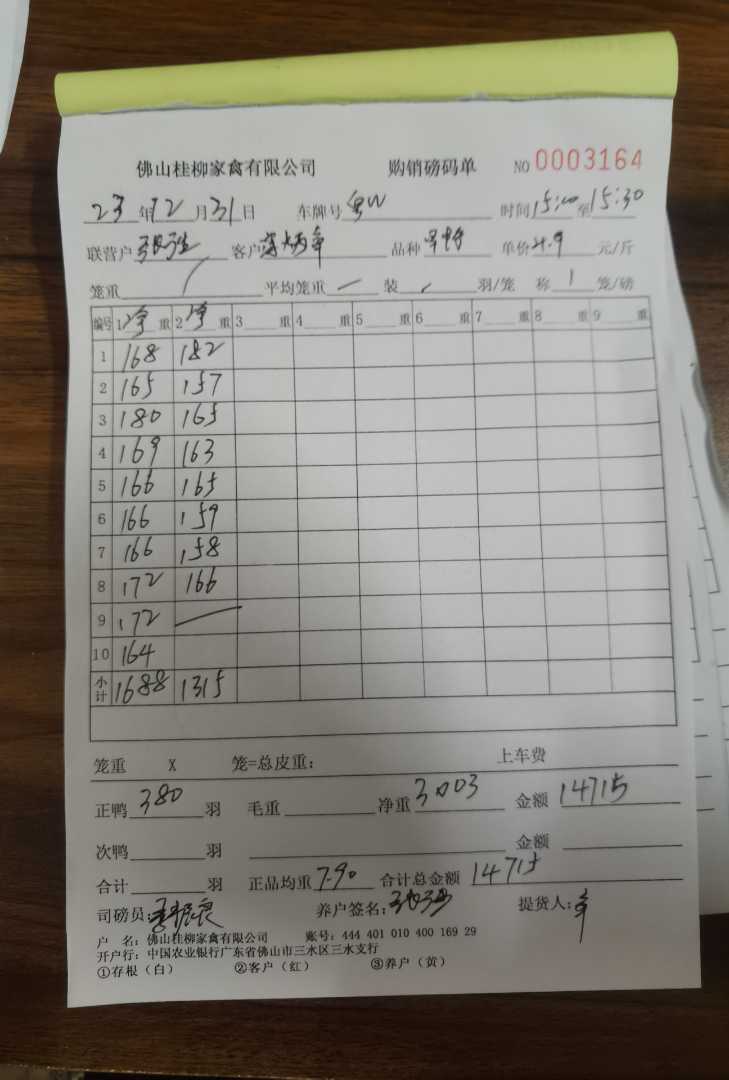 佛山桂柳家禽有限公司 购销磅码单 NO 0003164
23 年 12 月 31 日 车牌号 粤W 时间 15:00 至 15:30
联营户 客户 品种 单价 4.9 元/斤
笼重 / 平均笼重 — 装 羽/笼 称 1 笼/磅
编号 1 净 重 2 净 重 3 重 4 重 5 重 6 重 7 重 8 重 9 重
1 168 182
2 165 157
3 180 165
4 169 163
5 166 165
6 166 159
7 166 158
8 172 166
9 172 —
10 164
小计 1688 1315
笼重 X 笼=总皮重: 上车费
正鸭 380 羽 毛重 净重 3003 金额 14715
次鸭 羽 金额
合计 羽 正品均重 7.90 合计总金额 14715
司磅员: 养户签名: 提货人:
户 名: 佛山桂柳家禽有限公司 账号: 444 401 010 400 169 29
开户行: 中国农业银行广东省佛山市三水区三水支行
①存根(白) ②客户(红) ③养户(黄)